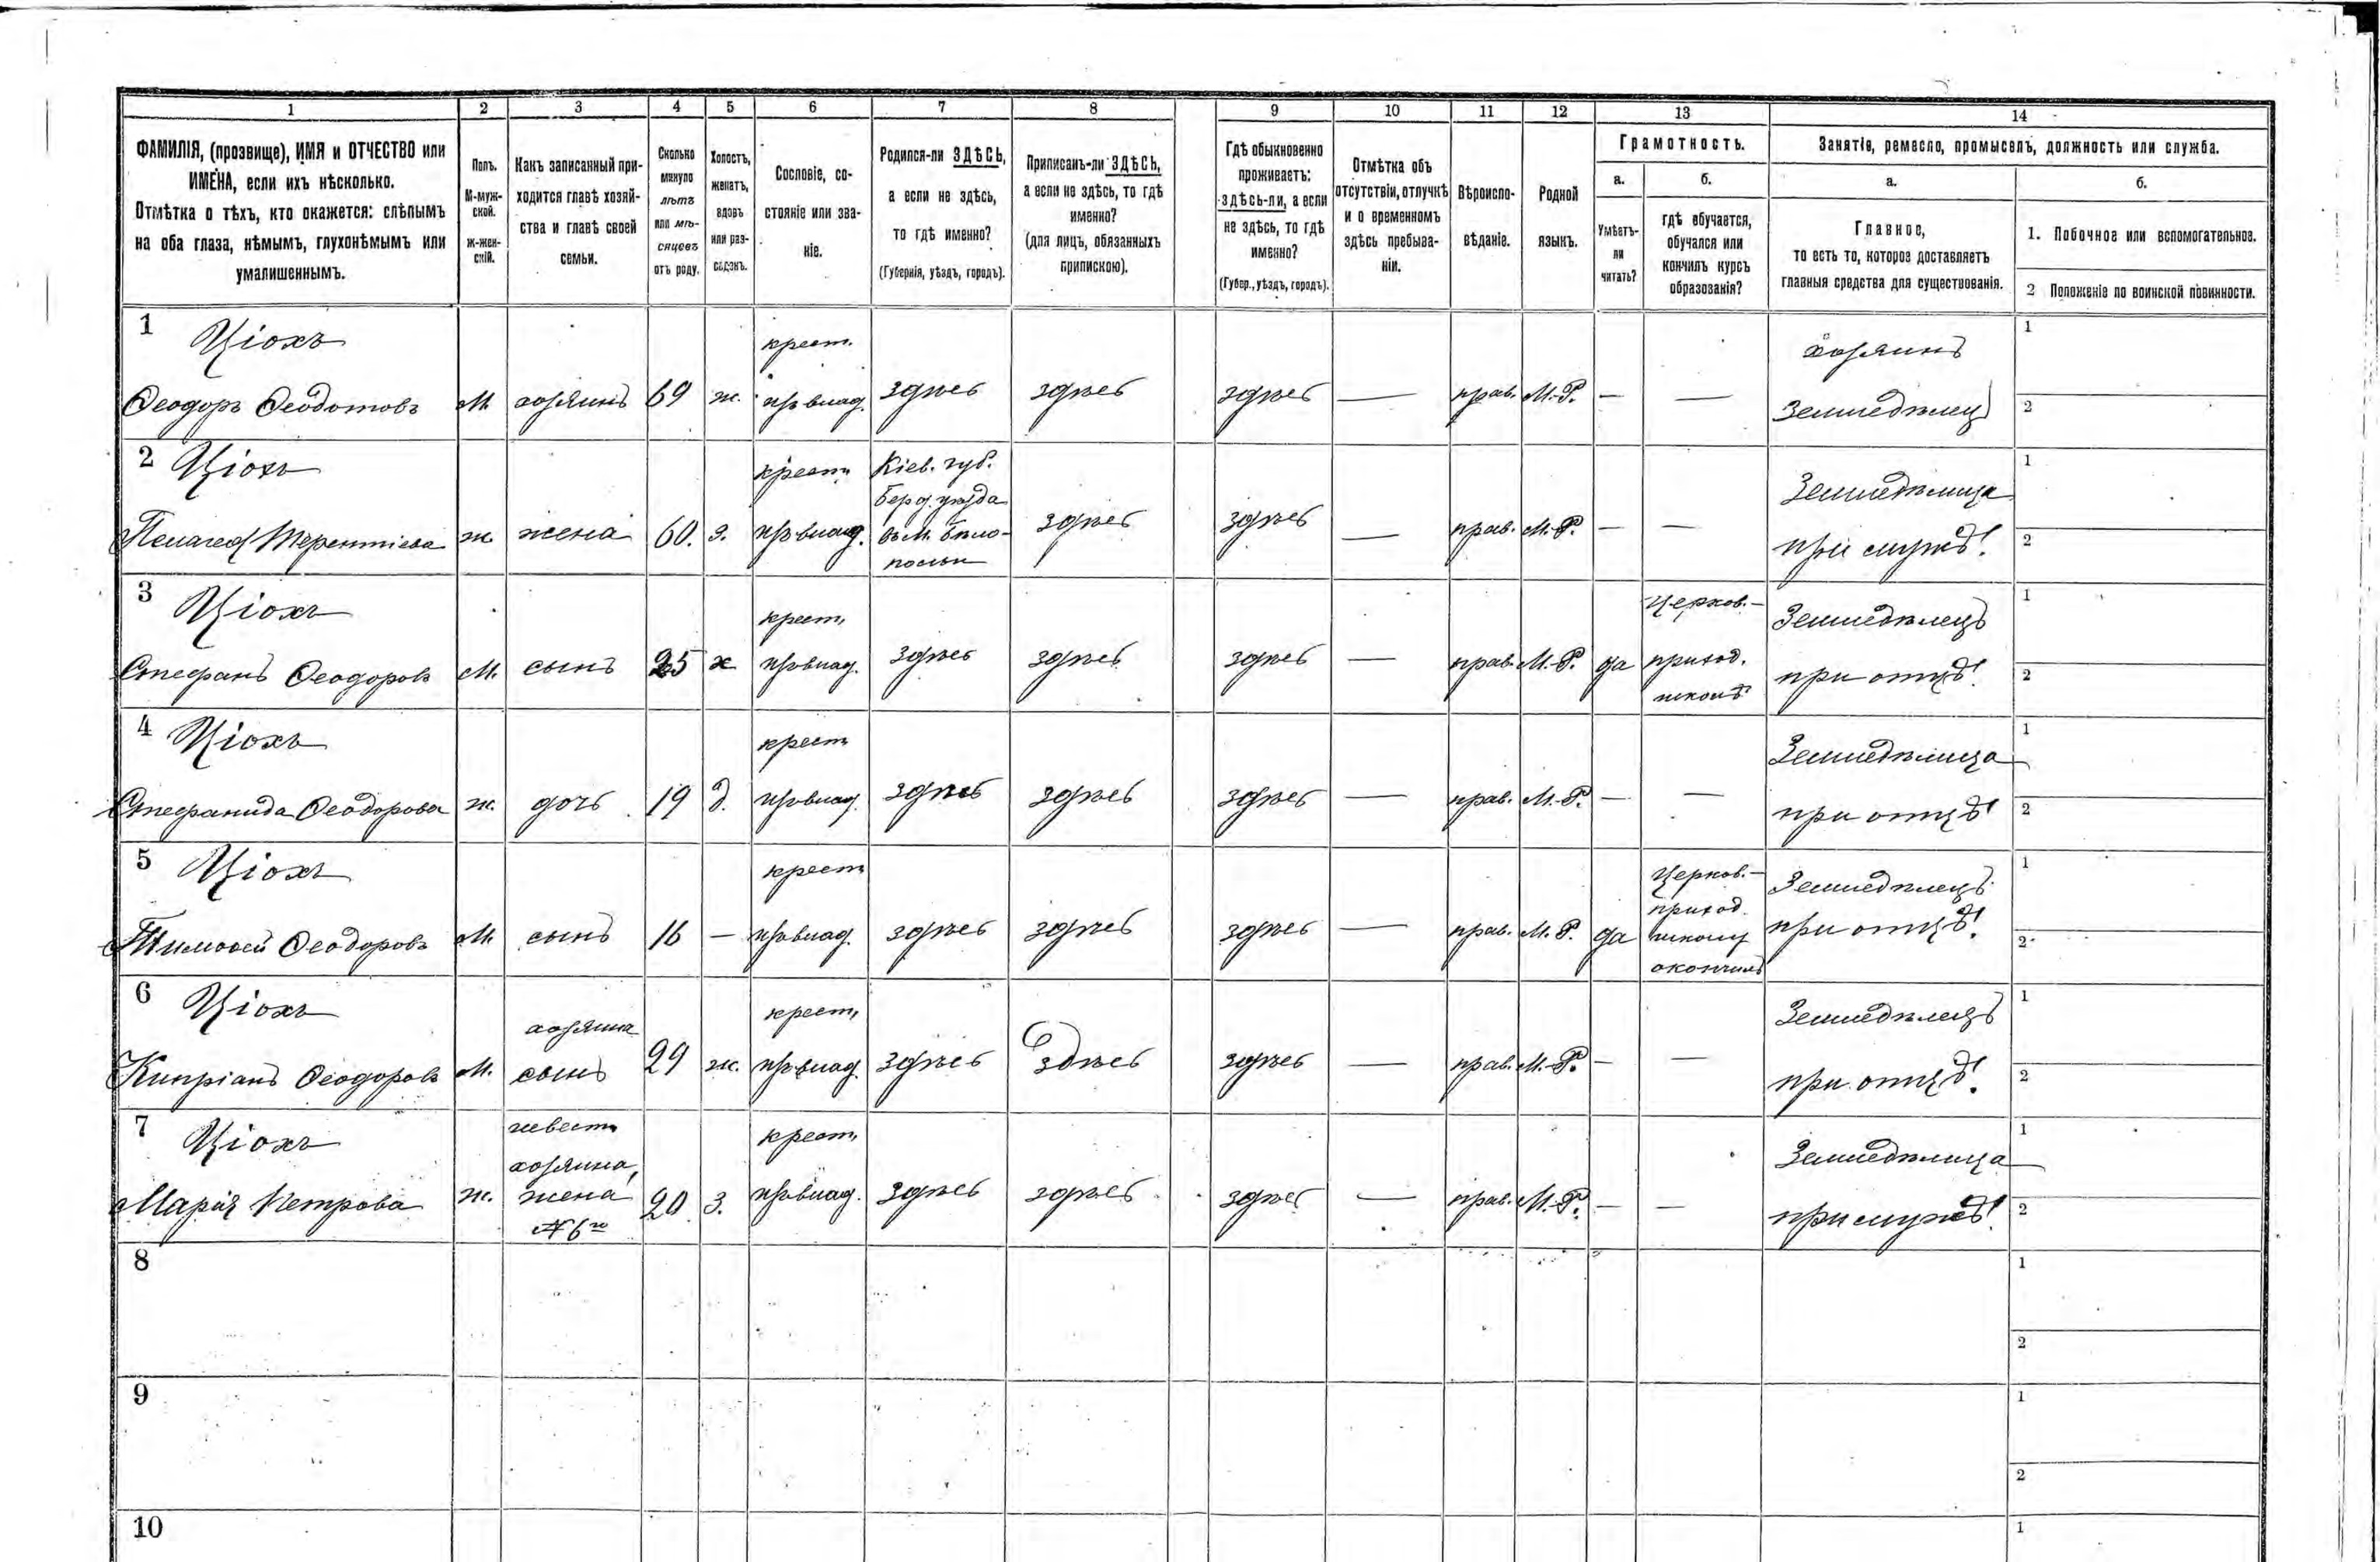 1 2 3 4 5 6 7 8 9 10 11 12 13 14
ФАМИЛІЯ, (прозвище), ИМЯ и ОТЧЕСТВО или
ИМЕНА, если ихъ нѣсколько.
Отмѣтка о тѣхъ, кто окажется: слѣпымъ
на оба глаза, нѣмымъ, глухонѣмымъ или
умалишеннымъ.
Полъ.
М-муж-
ской.
ж-жен-
скій.
Какъ записанный при-
ходится главѣ хозяй-
ства и главѣ своей
семьи.
Сколько
минуло
лѣтъ
или мѣ-
сяцевъ
отъ роду.
Холостъ,
женатъ,
вдовъ
или раз-
веденъ.
Сословіе, со-
стояніе или зва-
ніе.
Родился-ли ЗДѢСЬ,
а если не здѣсь,
то гдѣ именно?
(Губернія, уѣздъ, городъ).
Приписанъ-ли ЗДѢСЬ,
а если не здѣсь, то гдѣ
именно?
(для лицъ, обязанныхъ
припискою).
Гдѣ обыкновенно
проживаетъ:
здѣсь-ли, а если
не здѣсь, то гдѣ
именно?
(Губер., уѣздъ, городъ).
Отмѣтка объ
отсутствіи, отлучкѣ
и о временномъ
здѣсь пребыва-
ніи.
Вѣроиспо-
вѣданіе.
Родной
языкъ.
Грамотность.
а.
Умѣетъ-
ли
читать?
б.
гдѣ обучается,
обучался или
кончилъ курсъ
образованія?
Занятіе, ремесло, промыселъ, должность или служба.
а.
Главное,
то есть то, которое доставляетъ
главныя средства для существованія.
б.
1. Побочное или вспомогательное.
2 Положеніе по воинской повинности.
1 Ціохъ крест. хозяинъ 1
Ѳеодоръ Ѳеодотовъ М. хозяинъ 69 ж. пр. влад. здѣсь здѣсь здѣсь — прав. М.-Р. — — Земледѣлец 2
2 Ціохъ крест. Кіев. губ. 1
Берд. уѣзда Земледѣлица
Пелагея Терентіева ж. жена 60. з. пр. влад. въ М. Бѣло- здѣсь здѣсь — прав. М.-Р. — — при мужѣ. 2
польи
3 Ціохъ крест. Церков.- Земледѣлецъ 1
Стефанъ Ѳеодоровъ М. сынъ 25 х пр. влад. здѣсь здѣсь здѣсь — прав. М.-Р. да приход. при отцѣ. 2
школѣ
4 Ціохъ крест Земледѣлица 1
Стефанида Ѳеодорова ж. дочь 19 д. пр. влад. здѣсь здѣсь здѣсь — прав. М.-Р. — — при отцѣ 2
5 Ціохъ крест Церков.- Земледѣлецъ 1
приход.
Тимоѳей Ѳеодоровъ М. сынъ 16 — пр. влад. здѣсь здѣсь здѣсь — прав. М. Р. да школу при отцѣ. 2
окончилъ
6 Ціохъ хозяина крест. Земледѣлецъ 1
Кипріанъ Ѳеодоровъ М. сынъ 29 ж. пр. влад. здѣсь здѣсь здѣсь — прав. М.-Р. — — при отцѣ. 2
7 Ціохъ невест. крест. Земледѣлица 1
хозяина,
Марія Петрова ж. жена 20 з. пр. влад. здѣсь здѣсь здѣсь — прав. М.-Р. — — при мужѣ. 2
№ 6го
8 1
2
9 1
2
10 1